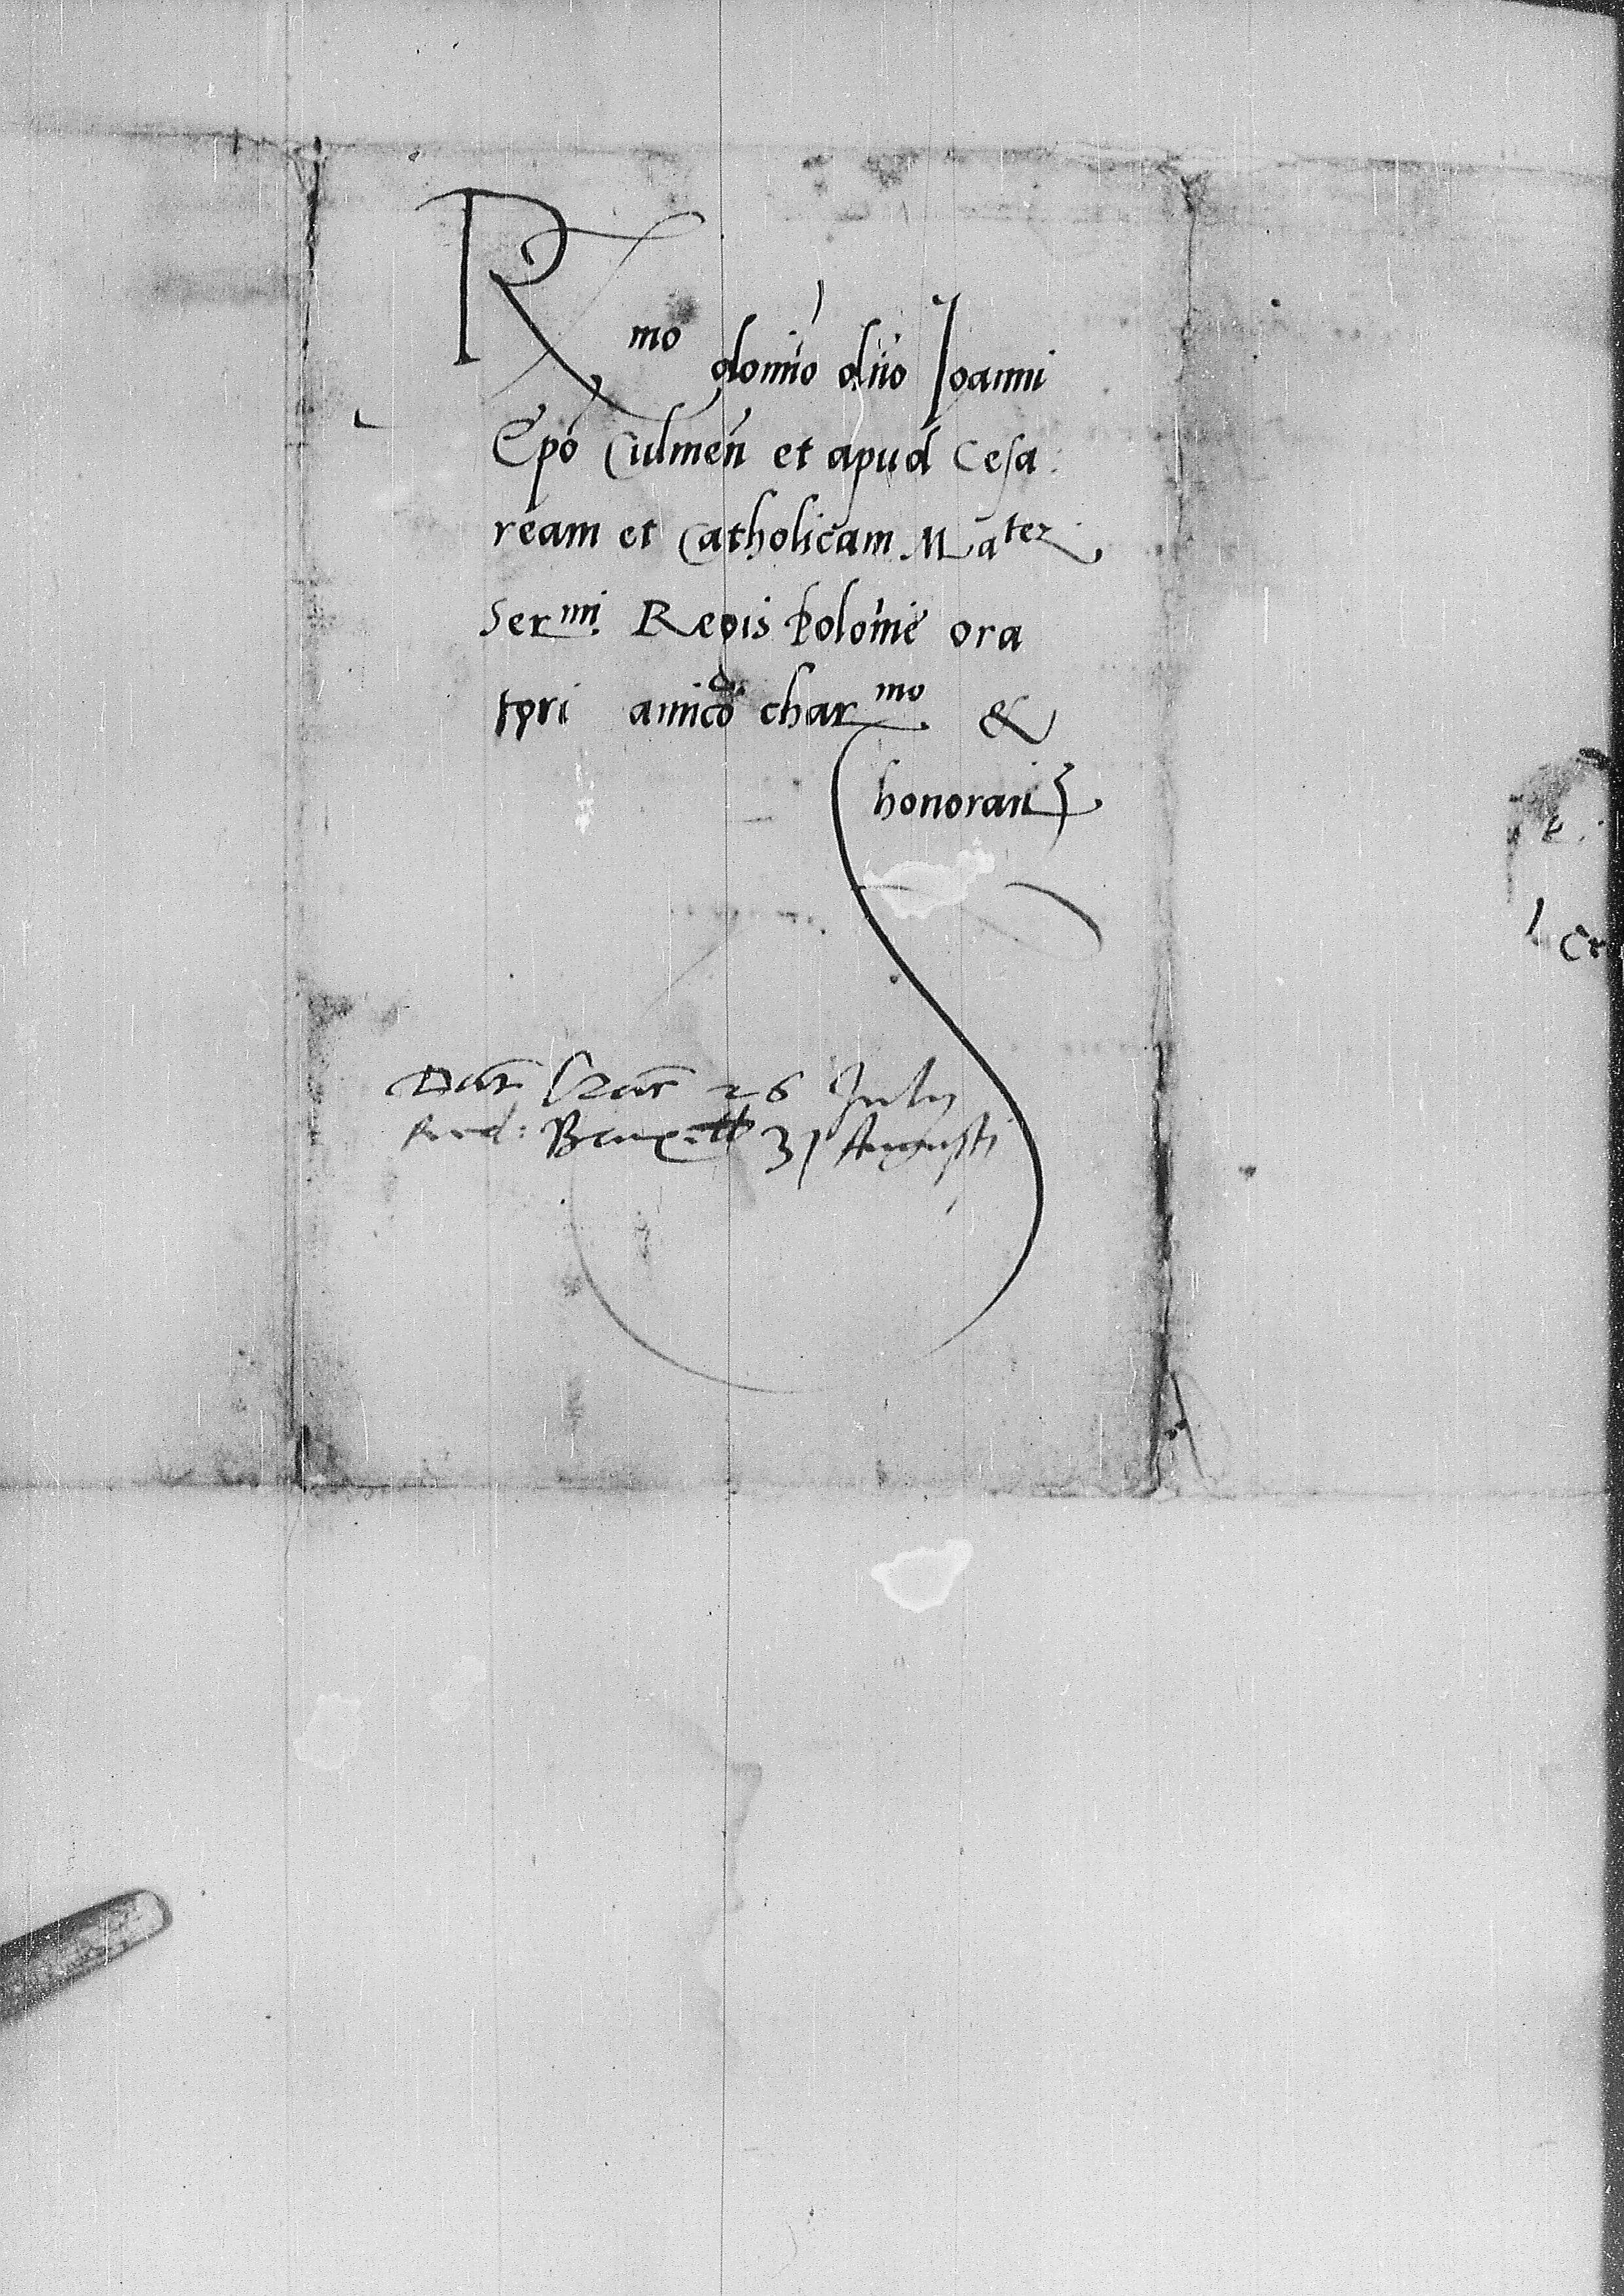 Rmo domino dno Ioanni
Epo Culmen et apud Cesa
ream et Catholicam Matez
Sermi Regis Polonie ora
tori amico charmo &
honoran
Dat Crac 26 Julij
Red: 31 Augusti